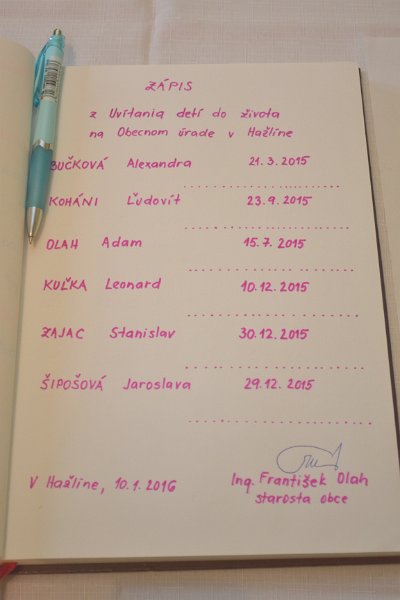 ZÁPIS
z Uvítania detí do života
na Obecnom úrade v Hažlíne
BUČKOVÁ Alexandra 21.3.2015
KOHÁNI Ľudovít 23.9.2015
OLAH Adam 15.7.2015
KUĽKA Leonard 10.12.2015
ZAJAC Stanislav 30.12.2015
ŠIPOŠOVÁ Jaroslava 29.12.2015
V Hažlíne, 10.1.2016
Ing. František Olah
starosta obce